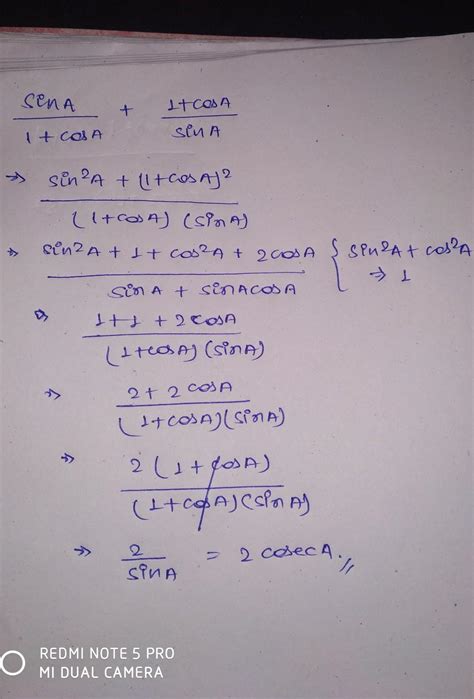 sinA/1+cosA + 1+cosA/sinA
⇒ sin²A + (1+cosA)²/(1+cosA) (sinA)
⇒ sin²A + 1 + cos²A + 2cosA/sinA + sinAcosA { sin²A + cos²A
→ 1
⇒ 1+1+2cosA/(1+cosA) (sinA)
⇒ 2+2cosA/(1+cosA)(sinA)
⇒ 2(1+cosA)/(1+cosA)(sinA)
⇒ 2/sinA = 2 cosecA.
REDMI NOTE 5 PRO
MI DUAL CAMERA